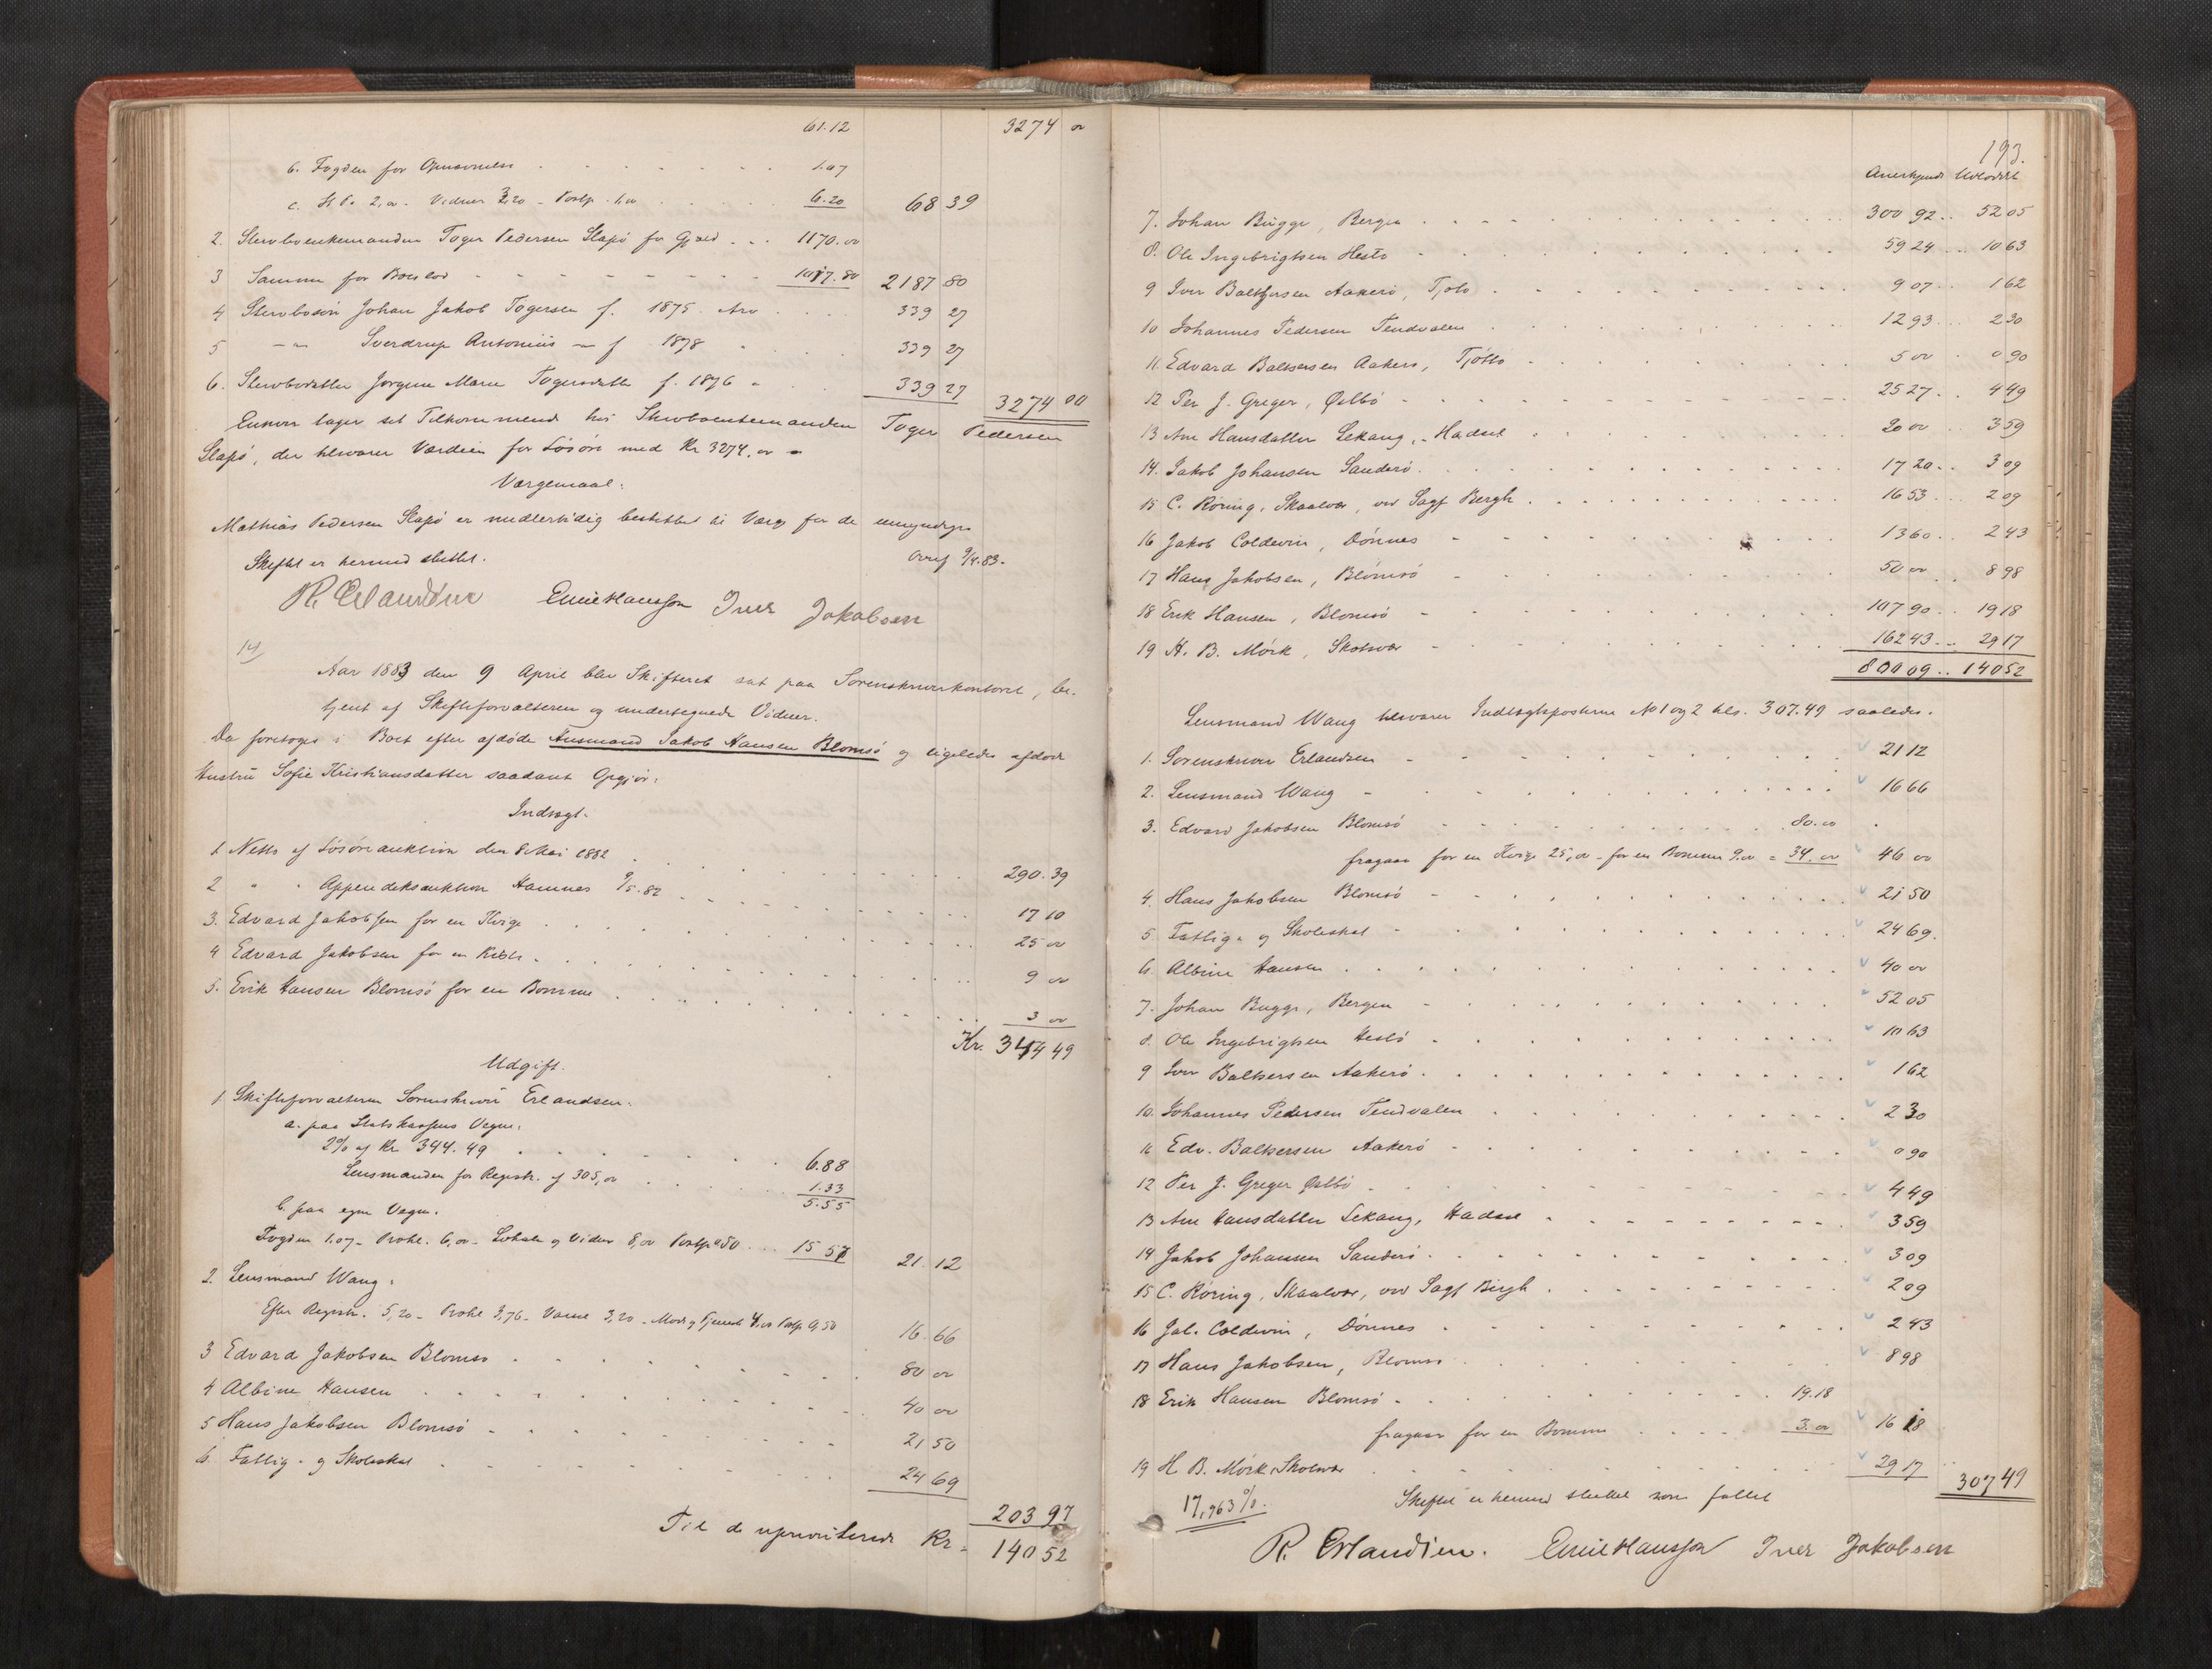 61.12 3274 00
b. Fogden for 1.07
c. St. P. 2,00 - Vidner 3,20 - Portp. 1,00 6.20 68 39
2. Stervboenkemanden Toger Pedersen Slapö for Gjæld 1170.00
3 Samme for Boeslod 1017.80 2187 80
4 Stervbosön Johan Jakob Togersen f. 1875. Arv 339 27
5 -"- Sverdrup Antonius -"- f. 1878 " 339 27
6. Stervbodatter Jorgine Marie Togersdatter f. 1876 " 339 27 3274 00
Enhver tager sit Tilkommende hos Stervboenkemanden Toger Pedersen
Slapö, der tilsvarer Værdien for Lösöre med Kr 3274,00
Værgemaal:
Mathias Pedersen Slapö er midlertidig beskikket til Værge for de umyndige
Skiftet er hermed sluttet. 9/4.83.
R. Erlandsen Emil Hansson Iver Jakobsen
14)
Aar 1883 den 9 April blev Skifteret sat paa Sorenskriverkontoret, be-
tjent af Skifteforvalteren og undertegnede Vidner.
Da foretoges i Boet efter afdöde Husmand Jakob Hansen Blomsö og ligeledes afdöde
Hustru Sofie Kristiansdatter saadant Opgjör:
Indtægt.
1. Netto af Lösöreauktion den 8 Mai 1882 290.39
2 " " Appendeksauktion Hamnes 9/5.82 17 10
3. Edvard Jakobsen for en Kvige 25 00
4 Edvard Jakobsen for en 9 00
5. Erik Hansen Blomsö for en Bomme 3 00
Kr. 344 49
Udgift.
1. Skifteforvalteren Sorenskriver Erlandsen:
a. paa Statskassens Vegne:
2% af Kr 344.49 6.88
Lensmanden for Registr. af 305,00 1.33
5.55
b. paa egne Vegne.
Fogden 1.07 - Prokl. 6,00 - Lokale og Vidner 8,00 Portp 0.50 15 57 21.12
2. Lensmand Wang:
Efter Registr. 5,20 - Prokl 3,76 - Varsel 3,20 - Mode og Fremst 4,00 Portp 0,50 16.66
3 Edvard Jakobsen Blomsö 80 00
4 Albine Hansen 40 00
5 Hans Jakobsen Blomsö 21 50
6. Fattig- og Skoleskat 24 69
203 97
Til de uprioriterede Kr. 140 52
193.
Anerkjendt Udloddet
7. Johan Bugge, Bergen 300 92 52 05
8. Ole Ingebrigtsen Hestö 59 24 10 63
9 Iver Baltzersen Aakerö, Tjötö 9 07 1 62
10 Johannes Pedersen Tendvalen 12 93 2 30
11. Edvard Baltsersen Aakerö, Tjötto 5 00 0 90
12 Per J. Greger, Östbö 25 27 4 49
13 Ane Hansdatter Lekang, Hadsel 20 00 3 59
14. Jakob Johansen Sanderö 17 20 3 09
15 C. Röring, Skaalvær, ved Sagf Bergh 16 53 2 09
16 Jakob Coldevin, Dönnes 13 60 2 43
17 Hans Jakobsen, Blomsö 50 00 8 98
18 Erik Hansen, Blomsö 107 90 19 18
19 H. B. Mörk, Skotsvær 162 43 29 17
800 09 140 52
Lensmand Wang tilsvarer Indtægtsposterne No 1 og 2 tils. 307.49 saaledes:
1. Sorenskriver Erlandsen 21 12
2. Lensmand Wang 16 66
3. Edvard Jakobsen Blomsö 80.00
fragaar for en Kvige 25,00 - for en Bomme 9.00 = 34.00 46 00
4. Hans Jakobsen Blomsö 21 50
5 Fattig- og Skoleskat 24 69.
6. Albine Hansen 40 00
7. Johan Bugge, Bergen 52 05
8. Ole Ingebrigtsen Hestö 10 63
9 Iver Baltsersen Aakerö 1 62
10. Johannes Pedersen Tendvalen 2 30
11 Edv. Baltsersen Aakerö 0 90
12 Per J. Greger Östbö 4 49
13 Ane Hansdatter Lekang, Hadsel 3 59
14 Jakob Johansen Sanderö 3 09
15 C. Röring, Skaalvær, ved Sagf Bergh 2 09
16 Jak. Coldevin, Dönnes 2 43
17 Hans Jakobsen, Blomsö 8 98
18 Erik Hansen Blomsö 19.18
fragaar for en Bomme 3.00 16 18
19 H. B. Mörk, Skotsvær 29 17 307 49
17,963%. Skiftet er hermed sluttet som fallit
R. Erlandsen. Emil Hansson Iver Jakobsen